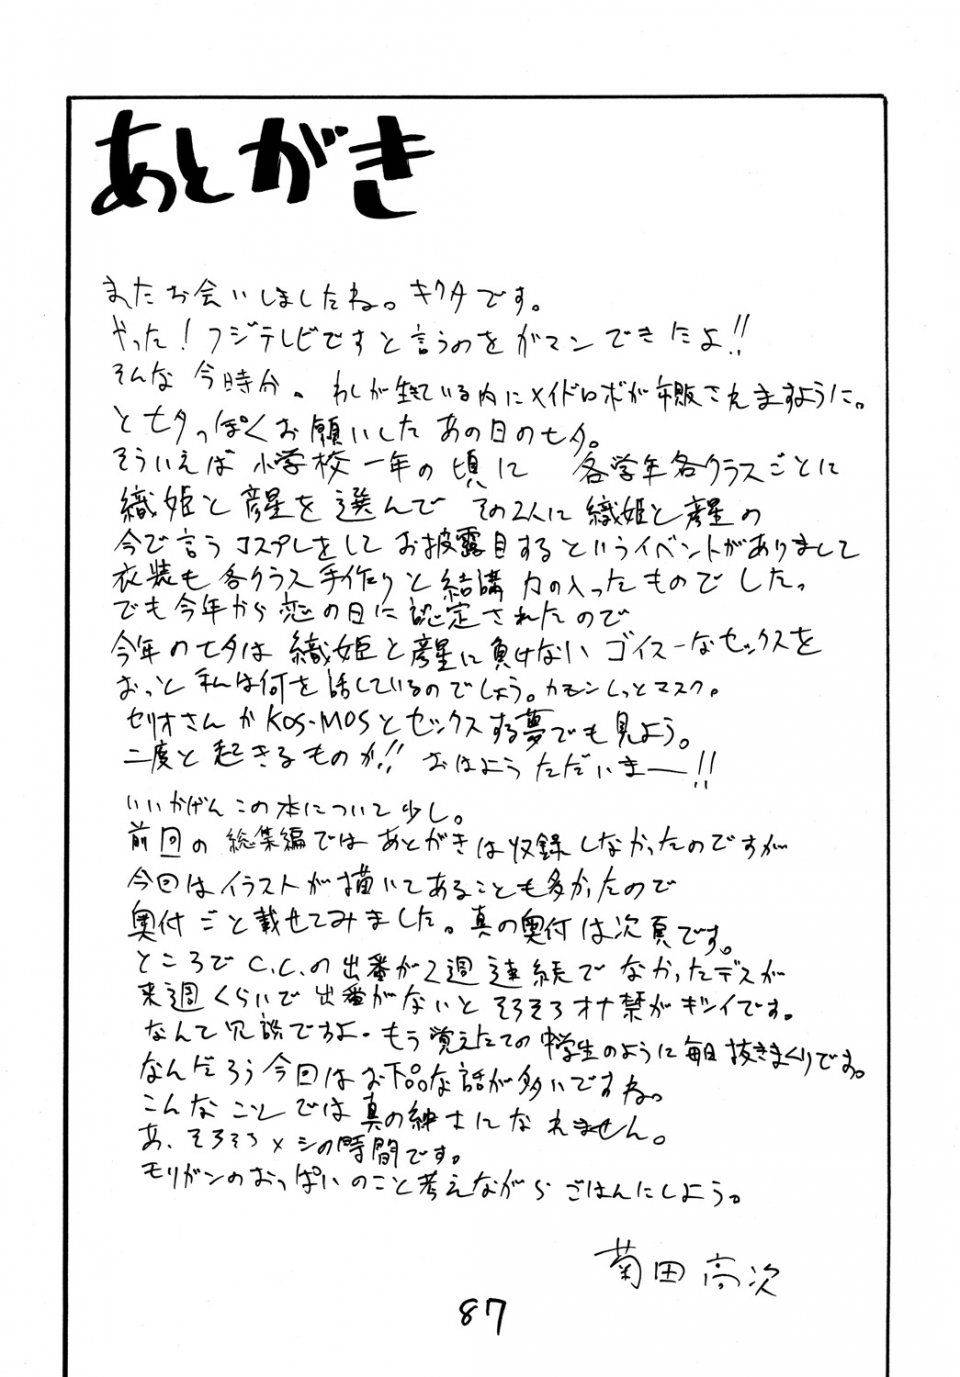 あとがき
またお会いしましたね。キクタです。
やった！フジテレビですと言うのをガマンできたよ!!
そんな今時分。わしが生きている内にメイドロボが市販されますように。
と七夕っぽくお願いしたあの日の七夕。
そういえば小学校一年の頃に 各学年各クラスごとに
織姫と彦星を選んで その2人に織姫と彦星の
今で言うコスプレをしてお披露目するというイベントがありまして
衣装も各クラス手作りと結構力の入ったものでした。
でも今年から恋の日に認定されたので
今年の七夕は織姫と彦星に負けないゴイスーなセックスを
おっと私は何を話しているのでしょう。カモンしっとマスク。
セリオさんかKOS-MOSとセックスする夢でも見よう。
二度と起きるものか!! おはようただいまー!!
いいかげんこの本について少し。
前回の総集編ではあとがきは収録しなかったのですが
今回はイラストが描いてあることも多かったので
奥付ごと載せてみました。真の奥付は次頁です。
ところでC.C.の出番が2週連続でなかったデスが
来週くらいで出番がないとそろそろオナ禁がキツイです。
なんて冗談ですよ。もう覚えたての中学生のように毎日抜きまくりです。
なんだろう今回はお下品な話が多いですね。
こんなことでは真の紳士になれません。
あ、そろそろメシの時間です。
モリガンのおっぱいのこと考えながらごはんにしよう。
菊田高次
87